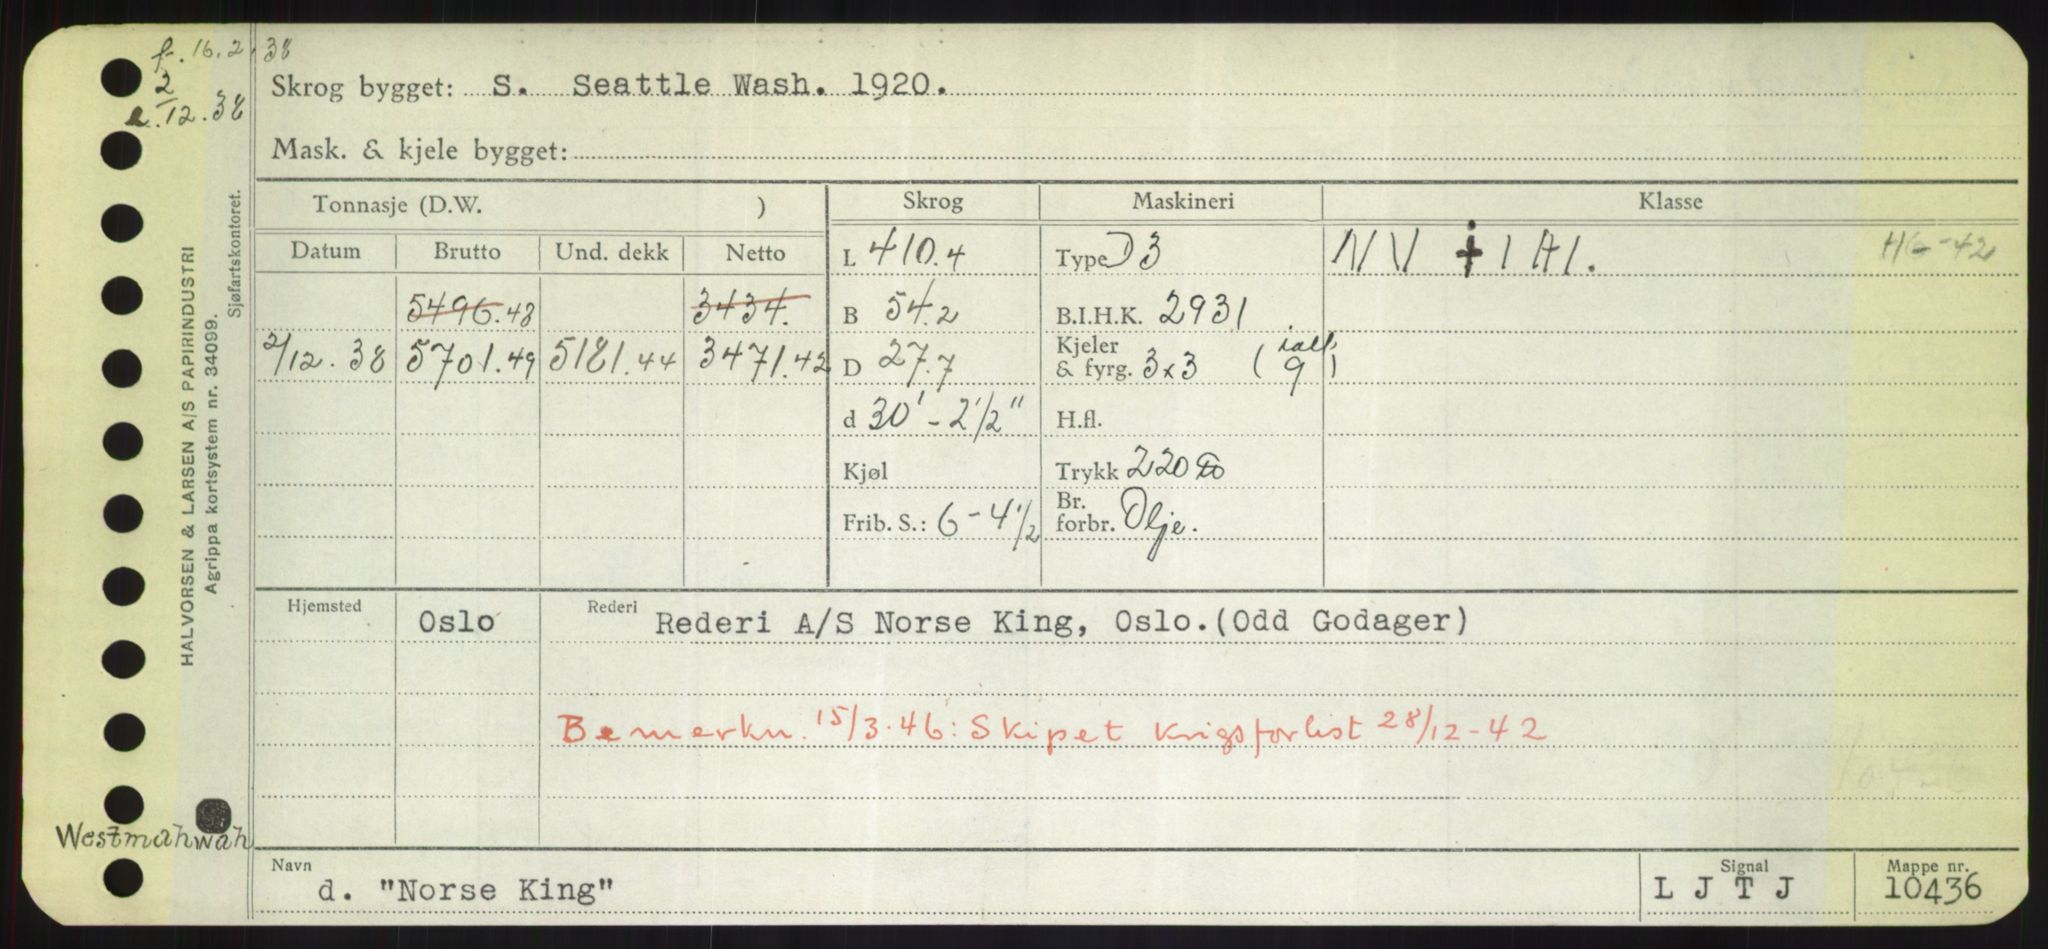 f. 16.2.38
2
e. 12.38
Skrog bygget: S. Seattle Wash. 1920.
Mask. & kjele bygget:
Tonnasje (D.W. )
Skrog
Maskineri
Klasse
Datum Brutto Und. dekk Netto
L 410.4
Type D 3
NV ✝ 1 A1.
HG-42
5496.43 3434.
B 54.2
B.I.H.K. 2931
2/12.38 5701.49 5181.44 3471.42
D 27.7
Kjeler
& fyrg. 3x3 (ialt 9)
d 30'-2 1/2"
H.fl.
Kjøl
Trykk 220
Frib. S.: 6-4 1/2
Br.
forbr. Olje.
Hjemsted Oslo
Rederi Rederi A/S Norse King, Oslo.(Odd Godager)
Bemerkn. 15/3.46: Skipet krigsforlist 28/12-42
Westmahwah
Navn
d. "Norse King"
Signal
L J T J
Mappe nr.
10436
HALVORSEN & LARSEN A/S PAPIRINDUSTRI
Agrippa kortsystem nr. 34099.
Sjøfartskontoret.